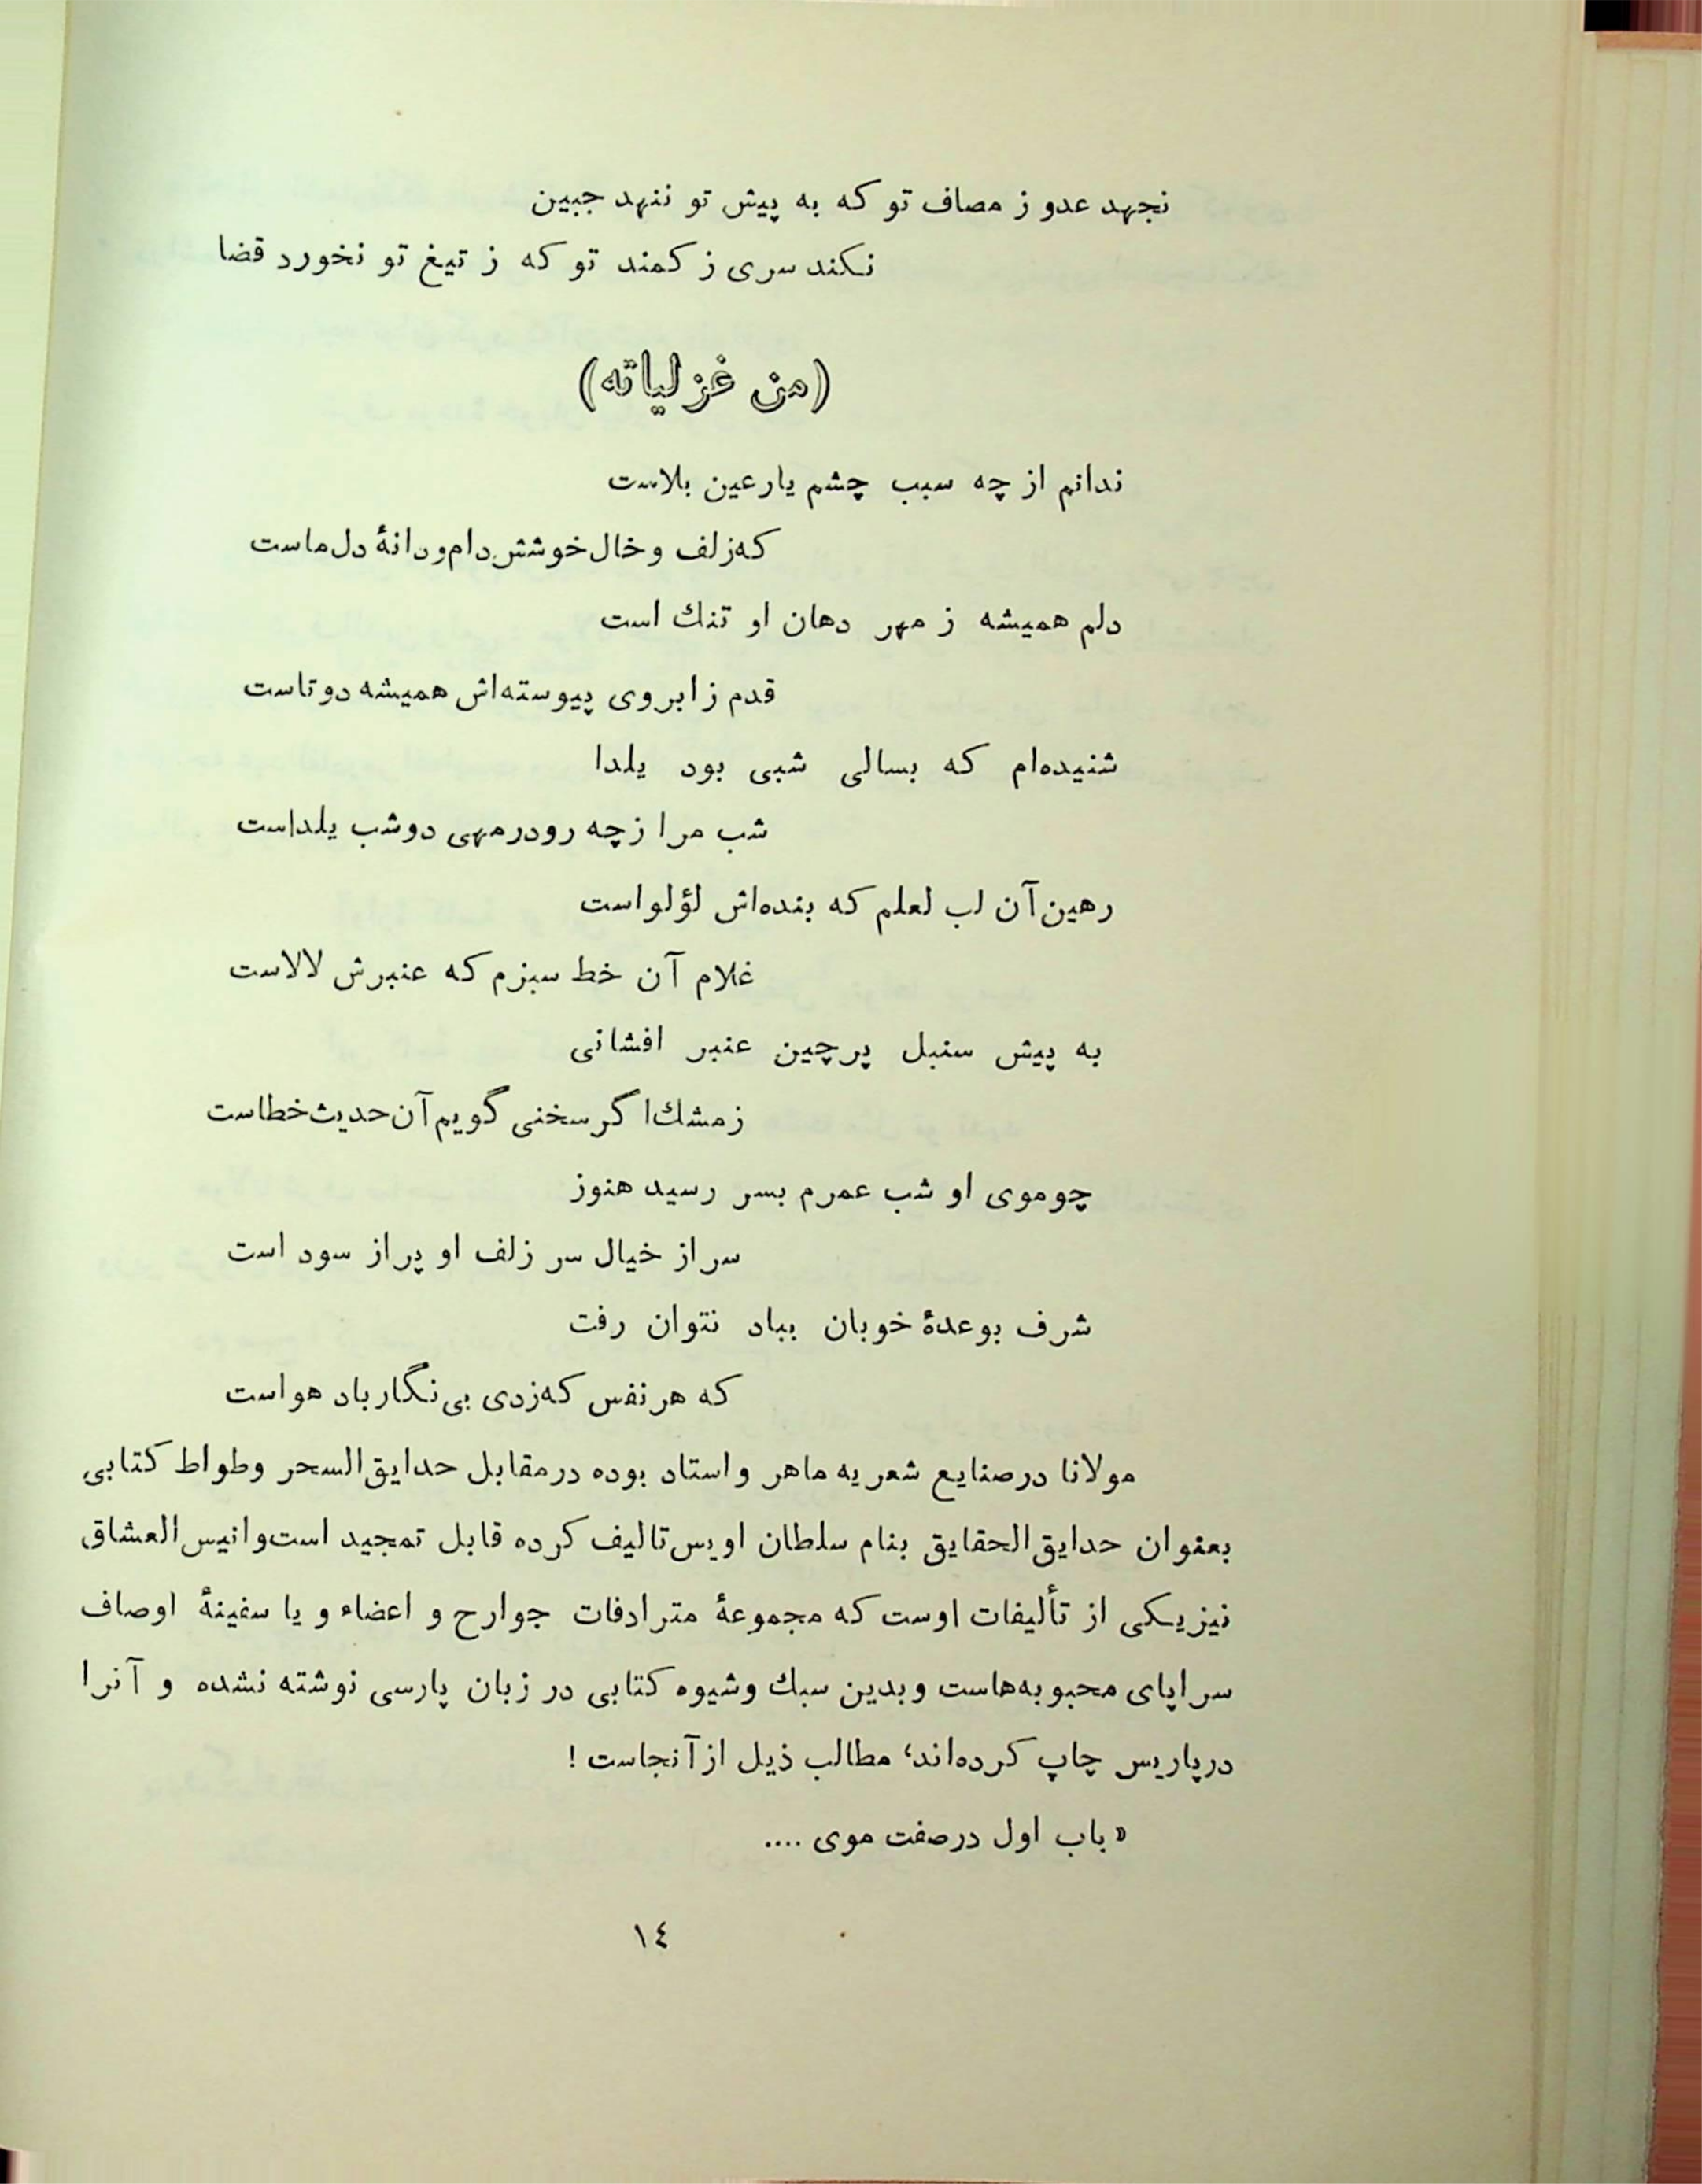 نجهد عدو ز مصاف تو که به پیش تو ننهد جبین
نکند سری ز کمند تو که ز تیغ تو نخورد قضا
(من غزلیاته)
ندانم از چه سبب چشم یار عین بلاست
که زلف و خال خوشش دام و دانهٔ دل ماست
دلم همیشه ز مهر دهان او تنك است
قدم ز ابروی پیوسته‌اش همیشه دوتاست
شنیده‌ام که بسالی شبی بود یلدا
شب مرا ز چه رو در مهی دو شب یلداست
رهین آن لب لعلم که بنده‌اش لؤلو است
غلام آن خط سبزم که عنبرش لالاست
به پیش سنبل پرچین عنبر افشانی
ز مشك اگر سخنی گویم آن حدیث خطاست
چو موی او شب عمرم بسر رسید هنوز
سر از خیال سر زلف او پر از سود است
شرف بوعدهٔ خوبان بباد نتوان رفت
که هر نفس که زدی بی نگار باد هواست
مولانا در صنایع شعریه ماهر و استاد بوده در مقابل حدایق السحر وطواط کتابی
بعنوان حدایق الحقایق بنام سلطان اویس تالیف کرده قابل تمجید است و انیس العشاق
نیز یکی از تألیفات اوست که مجموعهٔ مترادفات جوارح و اعضاء و یا سفینهٔ اوصاف
سراپای محبوبه‌هاست و بدین سبك و شیوه کتابی در زبان پارسی نوشته نشده و آنرا
در پاریس چاپ کرده‌اند، مطالب ذیل از آنجاست !
« باب اول در صفت موی ....
١٤